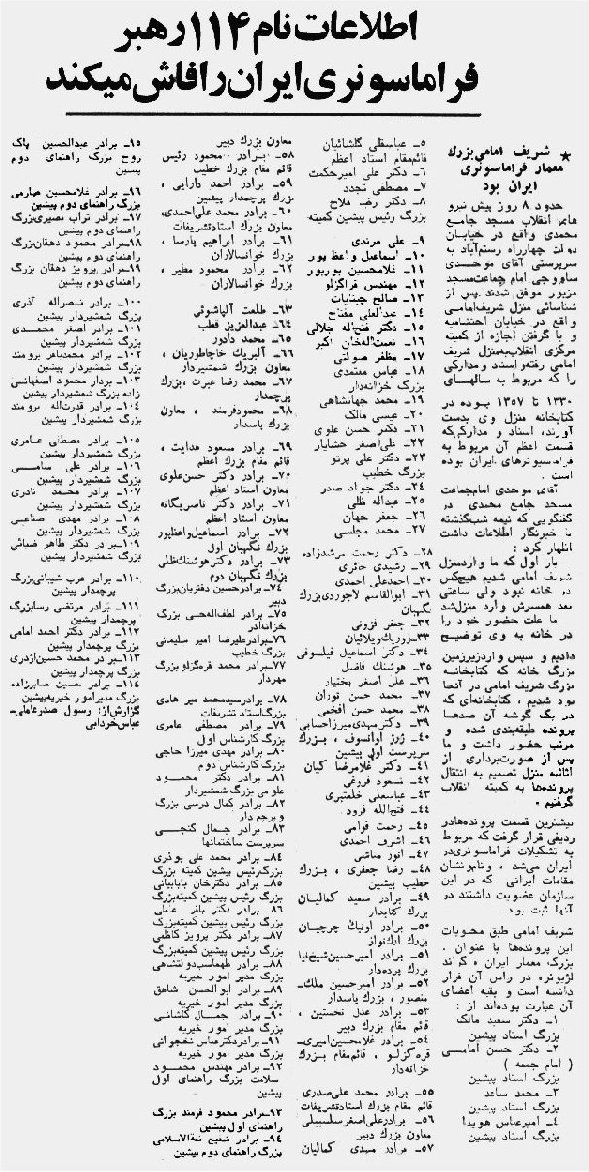 اطلاعات نام ۱۱۴ رهبر
فراماسونری ایران را فاش میکند
★ شریف امامی بزرك
معمار فراماسونری
ایران بود
حدود ۸ روز پیش نیرو
های انقلاب مسجد جامع
محمدی واقع در خیابان
دولت چهارراه رستم‌آباد به
سرپرستی آقای موحدی
ساوجی امام جماعت مسجد
مزبور موفق شدند پس از
شناسائی منزل شریف‌امامی
واقع در خیابان احتشامیه
و با گرفتن اجازه از کمیته
مرکزی انقلاب به منزل شریف
امامی رفته اسناد و مدارکی
را که مربوط به سالهای
۱۳۳۰ تا ۱۳۵۷ بوده در
کتابخانه منزل وی بدست
آورند، اسناد و مدارکی‌که
قسمت اعظم آن مربوط به
فراماسیونرهای ایران بوده
است .
آقای موحدی امام‌جماعت
مسجد جامع محمدی در
گفتگویی که نیمه شب‌گذشته
با خبرنگار اطلاعات داشت
اظهار کرد :
بار اول که ما وارد منزل
شریف امامی شدیم هیچ‌کس
در خانه نبود ولی ساعتی
بعد همسرش وارد منزل شد
ما علت حضور خود را
در خانه به وی توضیح
دادیم و سپس وارد زیرزمین
بزرگ خانه که کتابخانه
بزرگ شریف امامی در آنجا
بود شدیم ، کتابخانه‌ای که
در یک گوشه آن صدها
پرونده طبقه‌بندی شده و
مرتب حضور داشت و ما
پس از صورت‌برداری از
اثاثیه منزل تصمیم به انتقال
پرونده‌ها به کمیته انقلاب
گرفتیم .
بیشترین قسمت پرونده‌ها در
ردیفی قرار گرفت که مربوط
به تشکیلات فراماسونری در
ایران می‌شد ، و نام و نشان
مقامات ایرانی که در این
سازمان عضویت داشتند در
آنها ثبت بود
شریف امامی طبق محتویات
این پرونده‌ها با عنوان ،
بزرگ معمار ایران ، گراند
لژیونر، در رأس آن قرار
داشته است و بقیه اعضای
آن عبارت بوده‌اند از :
۱ـ دکتر سعید مالک
بزرگ استاد پیشین
۲ـ دکتر حسن امامی
( امام جمعه )
بزرگ استاد پیشین
۳ـ محمد ساعد
بزرگ استاد پیشین
۴ـ امیرعباس هویدا
بزرگ استاد پیشین
۵ـ عباسقلی گلشائیان
قائم‌مقام استاد اعظم
۶ـ دکتر علی امیرحکمت
۷ـ مصطفی تجدد
۸ـ دکتر رضا فلاح
بزرگ رئیس پیشین کمیته
۹ـ علی مرندی
۱۰ـ اسماعیل واعظ پور
۱۱ـ غلامحسین پوربور
۱۲ـ مهندس قراگزلو
۱۳ـ صالح چیتایات
۱۴ـ عبدالعلی مفتاح
۱۵ـ دکتر فتح‌اله جلالی
۱۶ـ نعمت‌اله‌خان اکبر
۱۷ـ مظفر صولتی
۱۸ـ عباس معتمدی
بزرگ خزانه‌دار
۱۹ـ محمد جهانشاهی
۲۰ـ عیسی مالک
۲۱ـ دکتر حسن علوی
۲۲ـ علی‌اصغر خشایار
۲۳ـ دکتر علی پرتو
بزرگ خطیب
۲۴ـ دکتر جواد صدر
۲۵ـ عبداله ظلی
۲۶ـ جعفر جهان
۲۷ـ محمد مجلسی
۲۸ـ دکتر رحمت مرشدزاده
۲۹ـ رشیدی حائری
۳۰ـ احمدعلی احمدی
۳۱ـ ابوالقاسم لاجوردی بزرگ
نگهبان
۳۲ـ جعفر قزونی
۳۳ـ
۳۴ـ دکتر اسماعیل فیلسوفی
۳۵ـ هوشنگ فاضل
۳۶ـ علی اصغر بختیار
۳۷ـ محمد حسن توران
۳۸ـ محمد حسن آفخمی
۳۹ـ دکتر مهدی میرزاحسابی
۴۰ـ ژرژ اوانسوف ، بزرگ
سرپرست اول پیشین
۴۱ـ دکتر غلامرضا کیان
۴۲ـ مسعود فروغی
۴۳ـ عباسعلی خلعتبری
۴۴ـ فتح‌اله فرود
۴۵ـ رحمت قوامی
۴۶ـ اشرف احمدی
۴۷ـ انور
۴۸ـ رضا جعفری ، بزرگ
خطیب پیشین
۴۹ـ برادر سعید کمالیان
بزرگ کتابدار
۵۰ـ برادر اونیک چرچیان
بزرگ ارگ‌نواز
۵۱ـ برادر امیرحسین شیخ‌نیا
بزرگ پرده‌دار
۵۲ـ برادر امیرحسین ملک‌
منصور ، بزرگ پاسدار
۵۳ـ برادر عدل نخستین ،
قائم مقام بزرگ دبیر
۵۴ـ برادر غلامحسین امیری‌
قره‌گزلو ، قائم‌مقام بزرگ
خزانه‌دار
۵۵ـ برادر محمد علی صدری
قائم مقام بزرگ استاد تشریفات
۵۶ـ برادر علی‌اصغر سلسبیلی
معاون بزرگ دبیر
۵۷ـ برادر مهدی کمالیان
معاون بزرگ دبیر
۵۸ـ برادر محمود رئیس
قائم مقام بزرگ خطیب
۵۹ـ برادر احمد دارابی ،
بزرگ پرچمدار پیشین
۶۰ـ برادر محمد علی احمدی،
معاون بزرگ استاد تشریفات
۶۱ـ برادر ابراهیم پارسا ،
بزرگ خوانسالاران
۶۲ـ برادر محمود مطیر ،
بزرگ خوانسالاران
۶۳ـ طلعت آلپاشوئی
۶۴ـ عبدالعزیز قطب
۶۵ـ محمد دادور
۶۶ـ آلبریک خاچاطوریان ،
معاون بزرگ شمشیردار
۶۷ـ محمد رضا عبرت ، بزرگ
پرچمدار
۶۸ـ محمود فرمند ، معاون
بزرگ پاسدار
۶۹ـ برادر مسعود هدایت ،
قائم مقام بزرگ اعظم
۷۰ـ برادر دکتر حسن علوی
معاون استاد اعظم
۷۱ـ برادر دکتر ناصر یگانه
معاون استاد اعظم
۷۲ـ برادر اسماعیل واعظپور
بزرگ نگهبان اول
۷۳ـ برادر دکتر هوشنگ ظلی
بزرگ نگهبان دوم
۷۴ـ برادر حسین دفتریان بزرگ
دبیر
۷۵ـ برادر لطف‌اله حی بزرگ
خزانه‌دار
۷۶ـ برادر علیرضا امیر سلیمانی
بزرگ خطیب
۷۷ـ برادر محمد قره‌گزلو بزرگ
مهردار
۷۸ـ برادر سید محمد میر هادی
بزرگ استاد تشریفات
۷۹ـ برادر مصطفی عامری
بزرگ کارشناس اول
۸۰ـ برادر مهدی میرزا حاجی
بزرگ کارشناس دوم
۸۱ـ برادر دکتر محمود
علومی بزرگ شمشیردار
۸۲ـ برادر کمال درسی بزرگ
پرچم دار
۸۳ـ برادر جمال گنجی
سرپرست ساختمانها
۸۴ـ برادر محمد علی بوذری
بزرگ رئیس پیشین کمیته بزرگ
۸۵ـ برادر دکتر خان بابا بیانی
بزرگ رئیس پیشین کمیته بزرگ
۸۶ـ برادر دکتر باقر عاملی
بزرگ رئیس پیشین کمیته بزرگ
۸۷ـ برادر دکتر پرویز کاظمی
بزرگ رئیس پیشین کمیته بزرگ
۸۸ـ برادر طهماسب دولتشاهی
بزرگ مدیر امور خیریه
۸۹ـ برادر ابوالحسن شاهق
بزرگ مدیر امور خیریه
۹۰ـ برادر جمال کاشانی
بزرگ مدیر امور خیریه
۹۱ـ برادر دکتر عباس نخجوانی
بزرگ مدیر امور خیریه
۹۲ـ برادر مهندس محمود
سلامت بزرگ راهنمای اول
پیشین
۹۳ـ برادر محمود فرمند بزرگ
راهنمای اول پیشین
۹۴ـ برادر شفیع ثقة‌الاسلامی
بزرگ راهنمای دوم پیشین
۹۵ـ برادر عبدالحسین پاک
روح بزرگ راهنمای دوم
پیشین
۹۶ـ برادر غلامحسین صارمی
بزرگ راهنمای دوم پیشین
۹۷ـ برادر تراب نصیری بزرگ
راهنمای دوم پیشین
۹۸ـ برادر محمود دهقان بزرگ
راهنمای دوم پیشین
۹۹ـ برادر پرویز دهقان بزرگ
راهنمای پیشین
۱۰۰ـ برادر نصراله آذری
بزرگ شمشیردار پیشین
۱۰۱ـ برادر اصغر محمدی
بزرگ شمشیردار پیشین
۱۰۲ـ برادر محمدباقر برومند
بزرگ شمشیردار پیشین
۱۰۳ـ برادر محمود اصفهانی
زاده بزرگ شمشیردار پیشین
۱۰۴ـ برادر قدرت‌اله برومند
بزرگ شمشیردار پیشین
۱۰۵ـ برادر مصطفی عامری
بزرگ شمشیردار پیشین
۱۰۶ـ برادر علی سامی
بزرگ شمشیردار پیشین
۱۰۷ـ برادر محمد نادری
بزرگ شمشیردار پیشین
۱۰۸ـ برادر مهدی صناعی
بزرگ شمشیردار پیشین
۱۰۹ـ برادر دکتر طاهر ضیائی
بزرگ شمشیردار پیشین
۱۱۰ـ برادر عرب شیبانی بزرگ
پرچمدار پیشین
۱۱۱ـ برادر مرتضی رسا بزرگ
پرچمدار پیشین
۱۱۲ـ برادر دکتر احمد امامی
بزرگ پرچمدار پیشین
۱۱۳ـ برادر محمد حسین اژدری
بزرگ پرچمدار پیشین
۱۱۴ـ برادر حسین صابرزاده
بزرگ مدیر امور خیریه پیشین
گزارش از: رسول صدرعاملی ـ
عباس خردابی